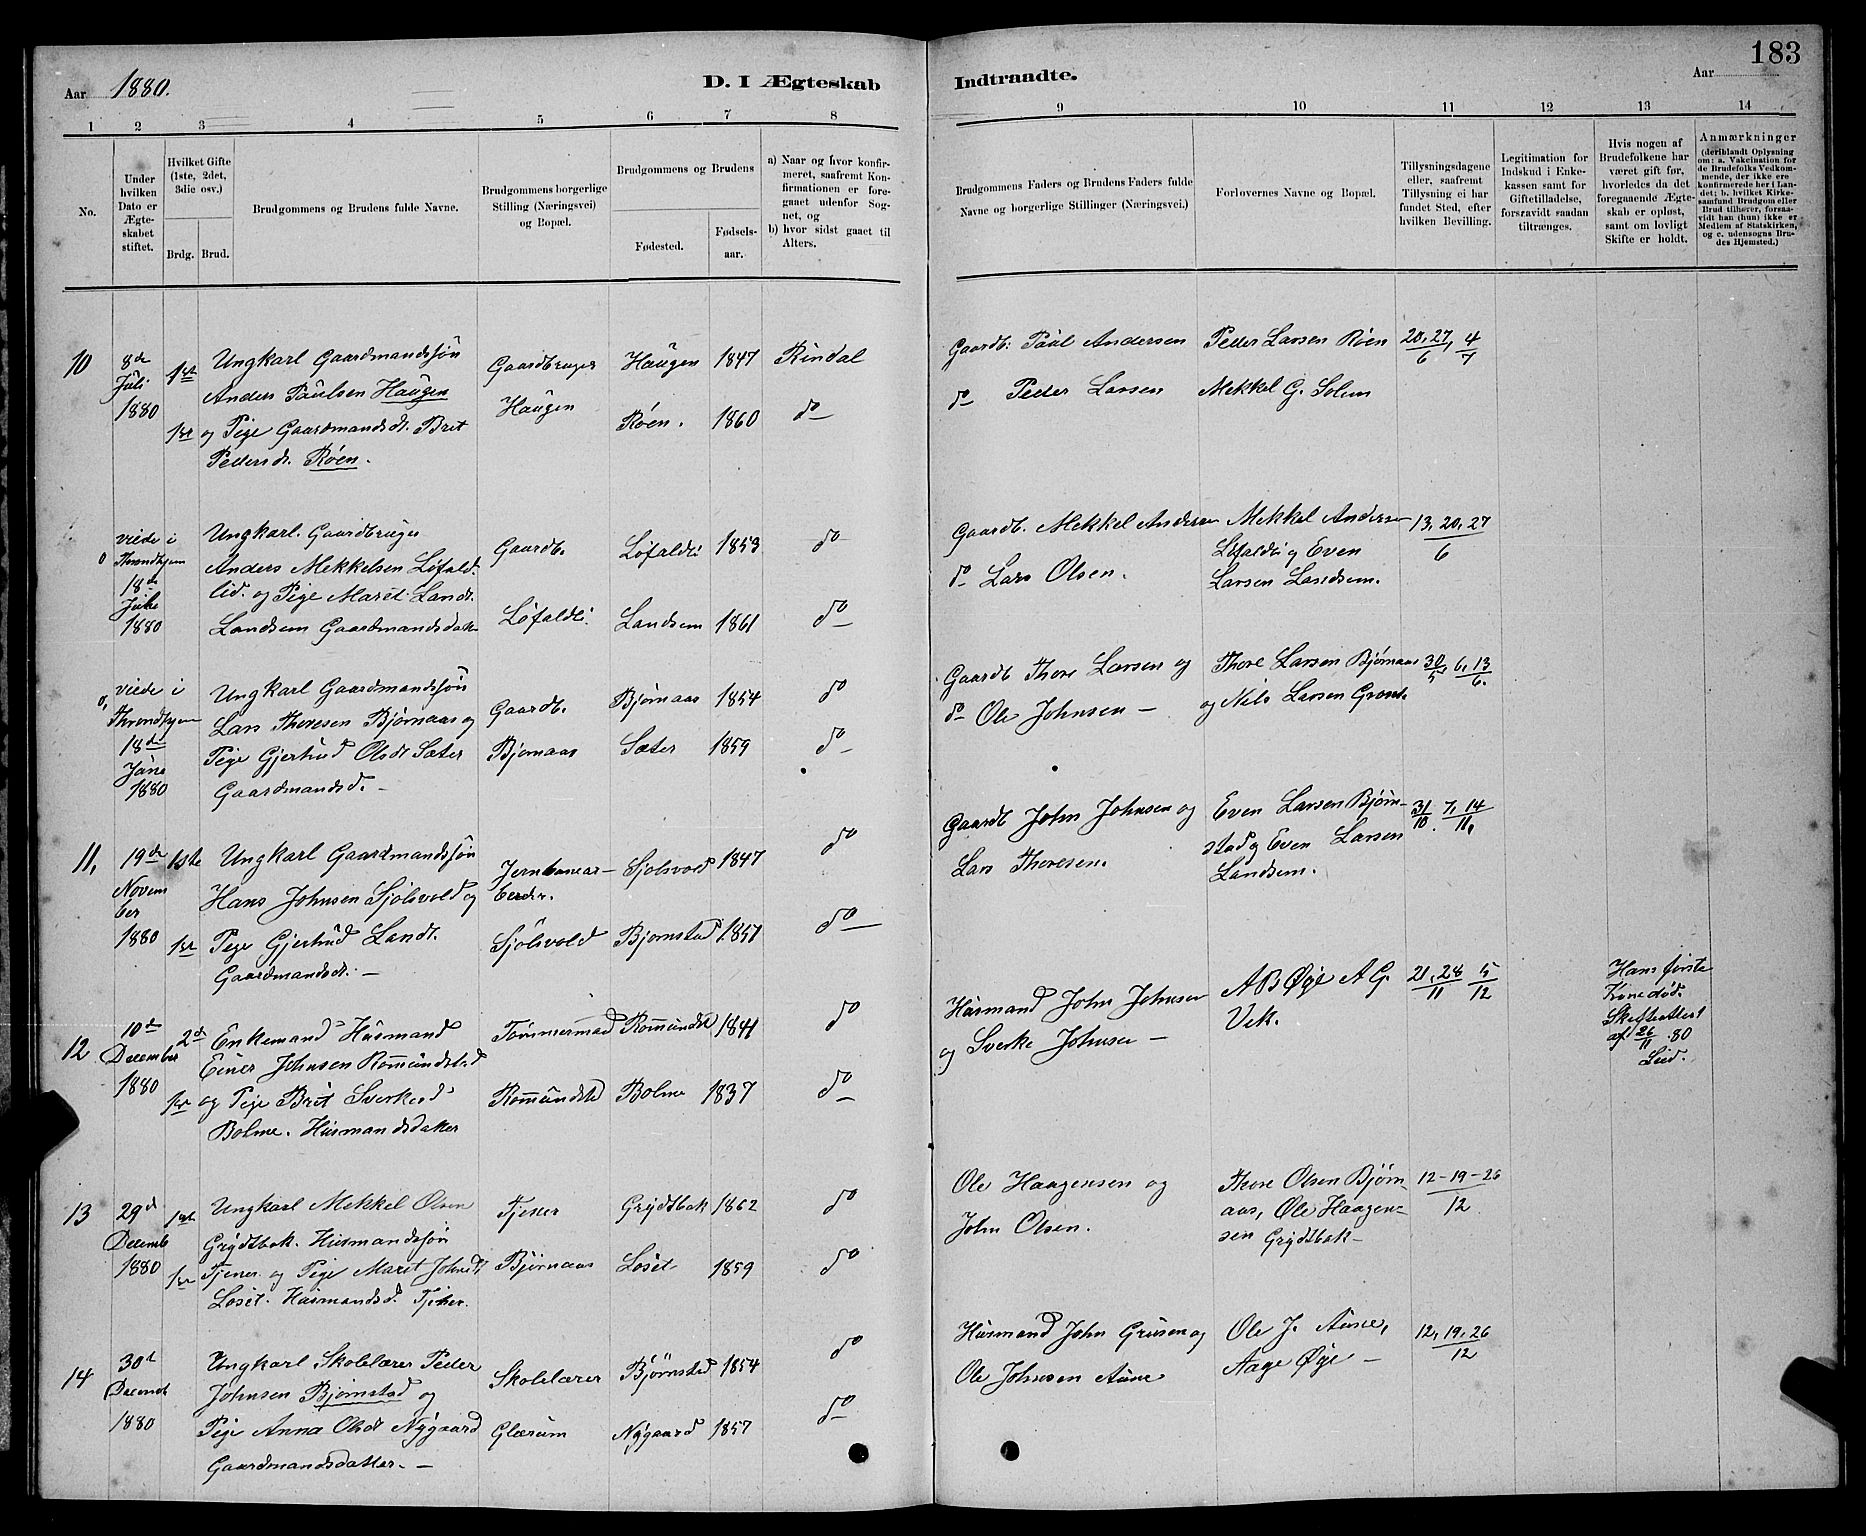 183
Aar 1880.
D. I Ægteskab
Indtraadte.
Aar
1 2 3 4 5 6 7 8
9 10 11 12 13 14
No.
Under
hvilken
Dato er
Ægte-
skabet
stiftet.
Hvilket Gifte
(1ste, 2det,
3die osv.)
Brdg. Brud.
Brudgommens og Brudens fulde Navne.
Brudgommens borgerlige
Stilling (Næringsvei)
og Bopæl.
Brudgommens og Brudens
Fødested.
Fødsels-
aar.
a) Naar og hvor konfir-
meret, saafremt Kon-
firmationen er fore-
gaaet udenfor Sog-
net, og
b) hvor sidst gaaet til
Alters.
Brudgommens Faders og Brudens Faders fulde
Navne og borgerlige Stillinger (Næringsvei.)
Forlovernes Navne og Bopæl.
Tillysningsdagene
eller, saafremt
Tillysning ei har
fundet Sted, efter
hvilken Bevilling.
Legitimation for
Indskud i Enke-
kassen samt for
Giftetilladelse,
forsaavidt saadan
tiltrænges.
Hvis nogen af
Brudefolkene har
været gift før,
hvorledes da det
foregaaende Ægte-
skab er opløst,
samt om lovligt
Skifte er holdt.
Anmærkninger
(deriblandt Oplysning
om: a. Vakcination for
de Brudefolks Vedkom-
mende, der ikke ere
konfirmerede her i Lan-
det; b. hvilket Kirke-
samfund Brudgom eller
Brud tilhører, forsaa-
vidt han (hun) ikke er
Medlem af Statskirken,
og c. udensogns Bru-
des Hjemsted.)
10
8de
Juli
1880
1ste
1ste
Ungkarl Gaardmandssøn
Anders Paulsen Haugen
og Pige Gaardmandsdt. Bret
Pedersdt. Røen.
Gaardbruger
Haugen
Haugen 1847 Rindal
Røen. 1860 do
Gaardb. Paul Andersen
do Peder Larsen
Peder Larsen Røen
Mekkel G. Solem
20, 27, 4
6 7
o
viede i
Throndhjem
18de
1880
Ungkarl. Gaardbruger
Anders Mekkelsen Løfald-
lid. og Pige Marit Landt.
Landsem Gaardmandsdatter
Gaardb.
Løfaldli.
Løfaldli 1853 do
Landsem 1861 do
Gaardb. Mekkel Andersen
do Lars Olsen.
Mekkel Andersen
Løfaldli og Even
Larsen Landsem.
13, 20, 27
6
o,
viede i
Throndhjem
18de
Juni
1880
Ungkarl Gaardmandssøn
Lars Thoresen Bjørnaas og
Pige Gjertrud Olsdt Sæter
Gaardmandsd. —
Gaardb.
Bjørnaas
Bjørnaas 1854 do
Sæter 1859 do
Gaardb Thore Larsen og
do Ole Johnsen —
Thore Larsen Bjørnaas
og Nils Larsen
30, 6, 13
5 6.
11,
19de
Novem
ber
1880
1ste
1ste
Ungkarl Gaardmandssøn
Hans Johnsen Sjølsvold og
Pige Gjertrud Landt.
Gaardmandsdt. —
Jernbanear-
beider.
Sjølsvold
Sjølsvold 1847 do
Bjørnstad 1857 do
Gaardb John Johnsen og
Lars Thoresen.
Even Larsen Bjørn-
stad og Even Larsen
Landsem.
31. 7, 14
10 11,
12
10de
December
1880
2de
1ste
Enkemand Husmand
Einer Johnsen Romundstad
og Pige Brit Sverkesd
Bolme. Husmandsdatter
Tømmermand
Romundstd
Romundstd 1841 do
Bolme 1837 do
Husmand John Johnsen
og Sverke Johnsen —
A B Øye A G.
Vek.
21, 28 5
11 12
Hans første
Kone død.
Skifteattest
af 26/11 80
13
29d
Decemb
1880
1ste
1ste
Ungkarl Mekkel Olsen
Grydtbak. Husmandssøn
Tjener og Pige Maret Johnsdt
Løset. Husmandsd. Tjener.
Tjener
Bjørnaas
Grydtbak 1862 do
Løset 1859 do
Ole Haagensen og
John Olsen.
Thore Olsen Bjørn-
aas, Ole Haagen-
sen Grydtbak —
12 - 19 - 26
12
14
30d
Decemb
1880
Ungkarl Skolelærer Peder
Johnsen Bjørnstad og
Pige Anna Olsdt Nygaard
Gaardmandsdatter. —
Skolelærer
Glærum
Bjørnstad 1854 do
Nygaard 1857 do
Husmand John Grusen og
Ole Johnsen Aune
Ole J. Aune,
Aage Øye —
12, 19, 26
12